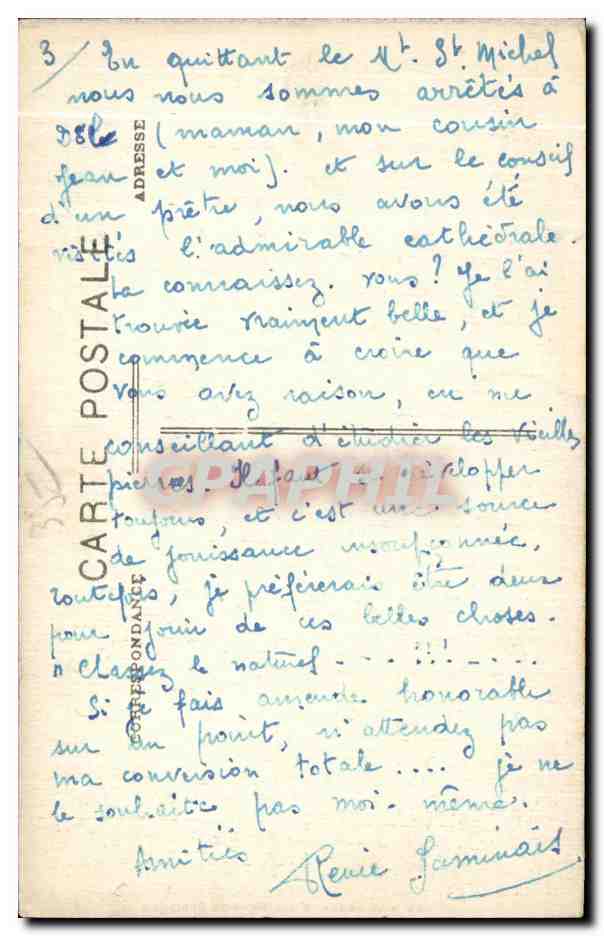 3/ En quittant le Mt. St. Michel
nous nous sommes arrêtés à
Dol (maman, mon cousin
Jean et moi). et sur le conseil
d'un prêtre, nous avons été
visités l'admirable cathédrale.
La connaissez-vous? Je l'ai
trouvée vraiment belle, et je
commence à croire que
vous avez raison, en me
conseillant d'étudier les vieilles
pierres. Il faut développer
toujours, et c'est une source
de jouissance insoupçonnée.
Toutefois, je préférerais être deux
pour jouir de ces belles choses.
"Chassez le naturel - - - !!! - . . .
Si je fais amende honorable
sur un point, n'attendez pas
ma conversion totale.... je ne
le souhaite pas moi-même.
Amitiés Renée Jaminais
CARTE POSTALE
ADRESSE
CORRESPONDANCE
CPAPHIL